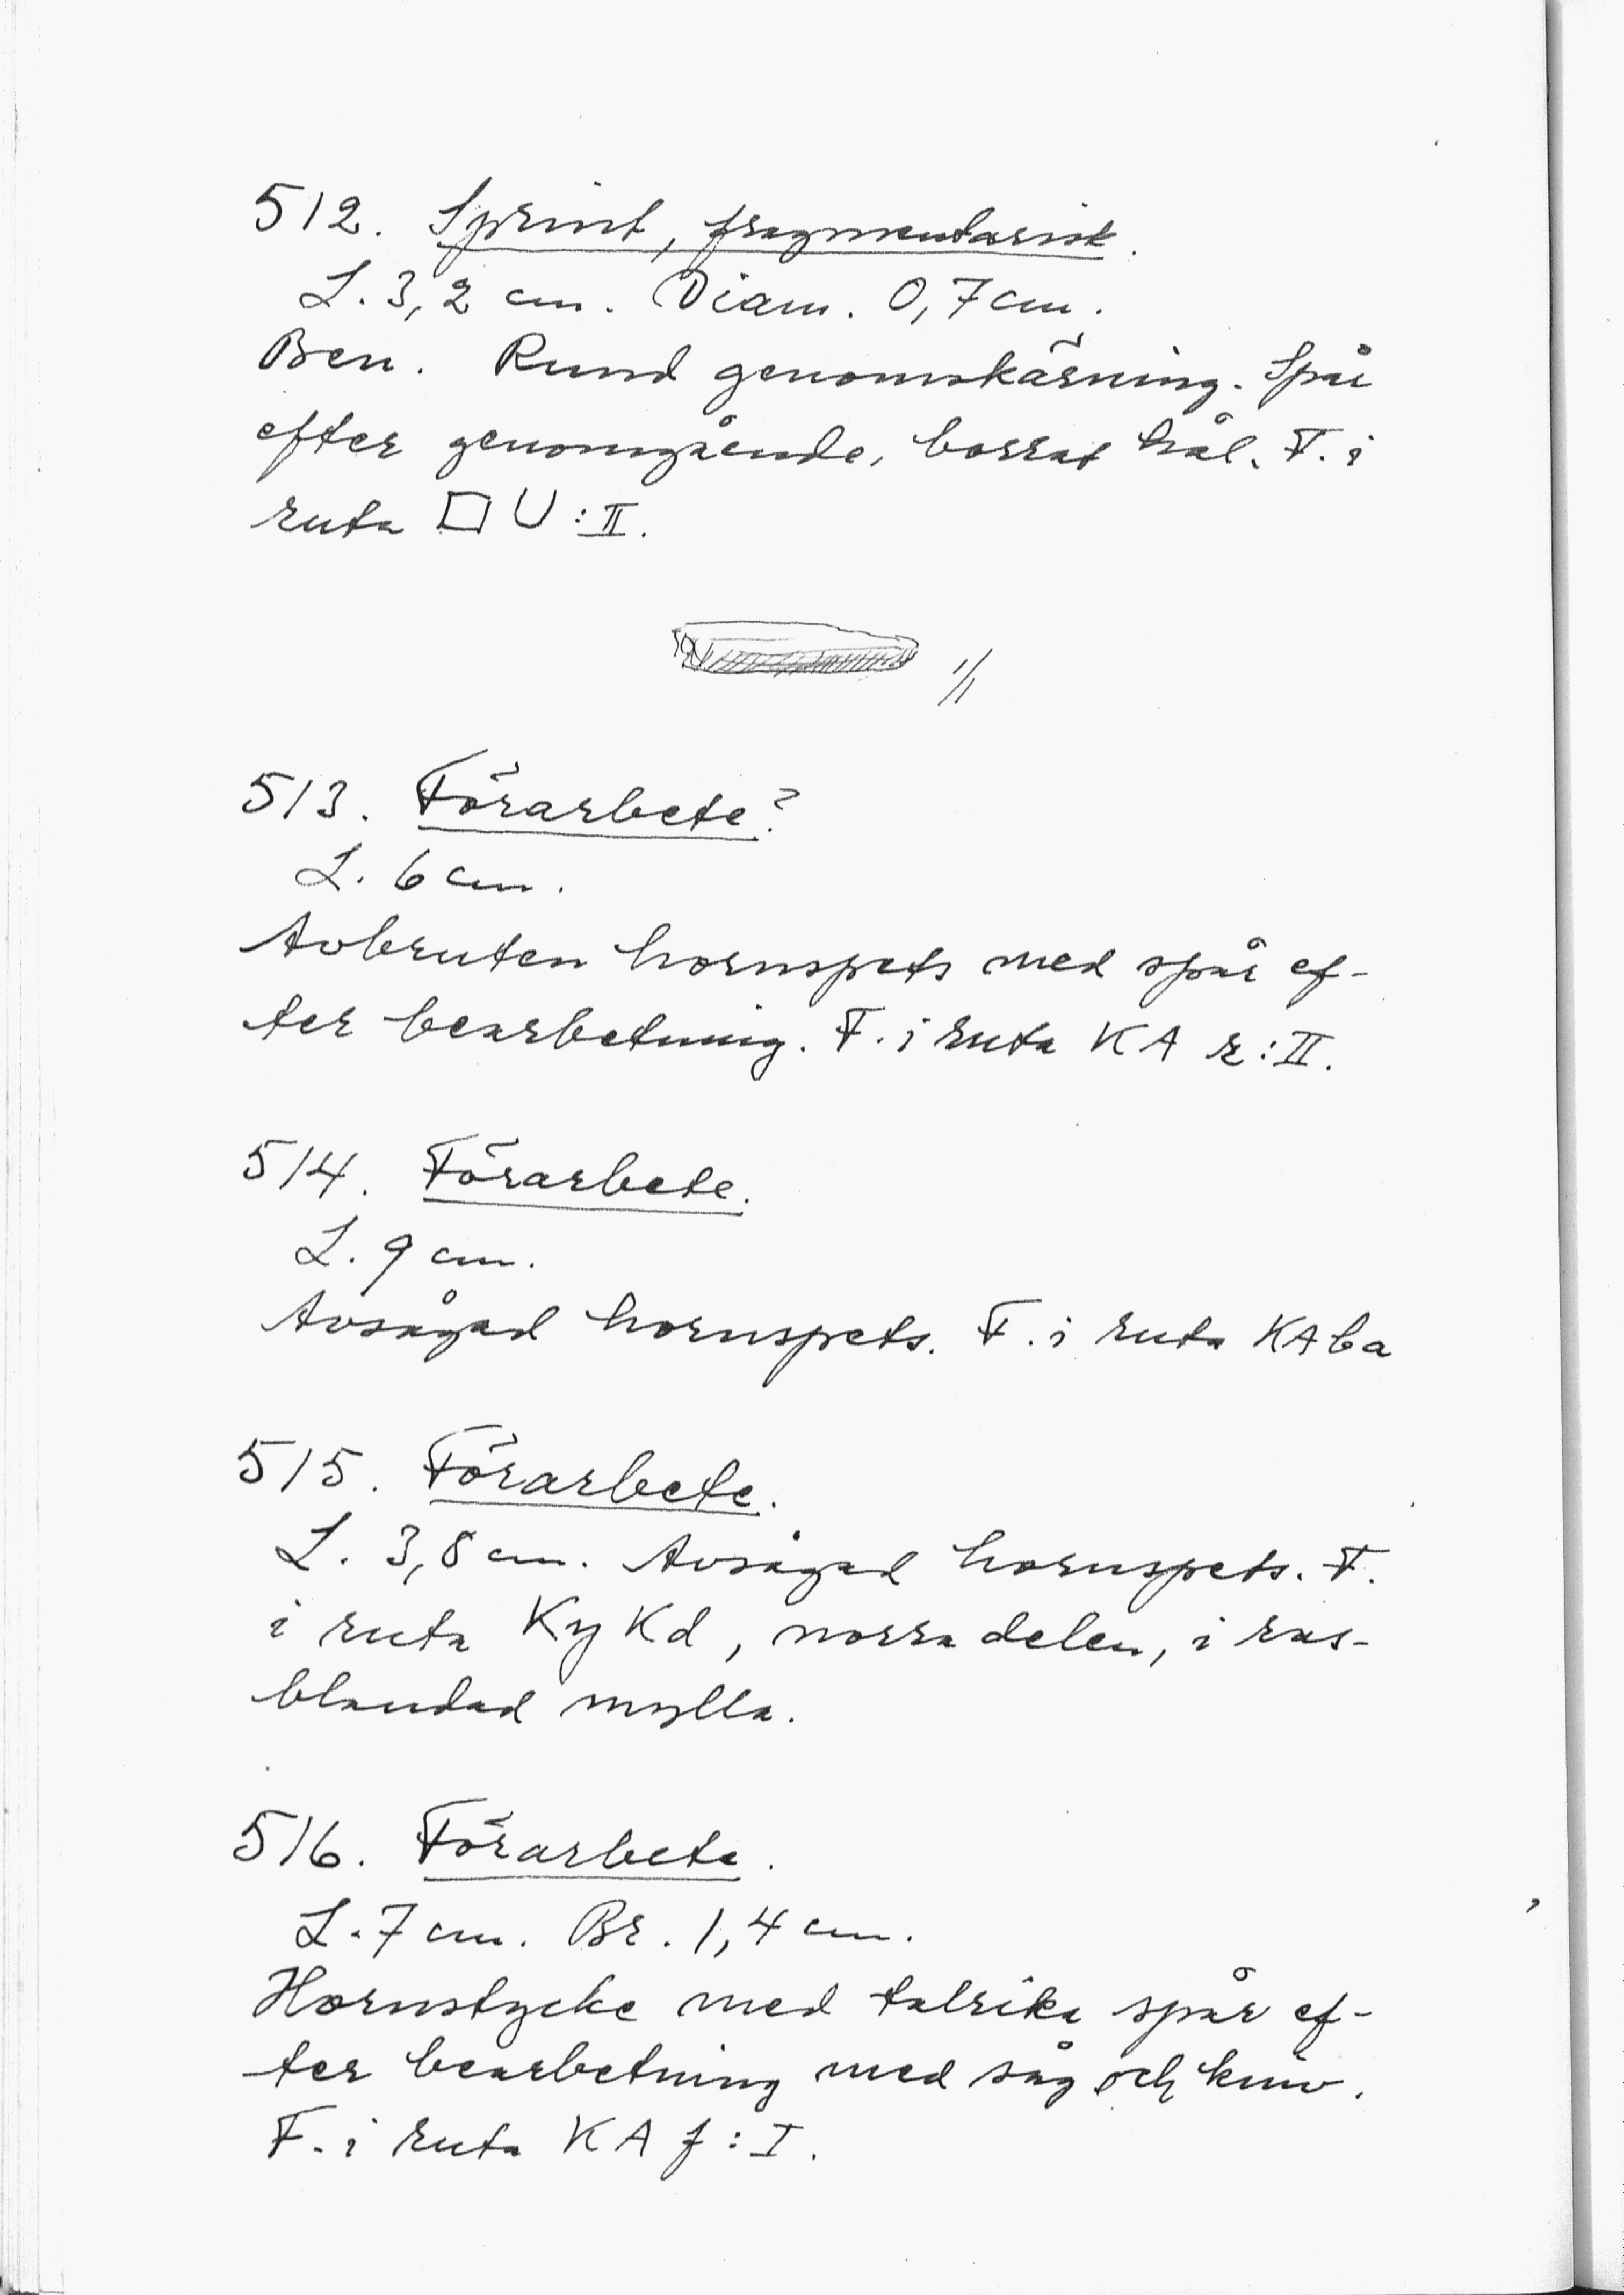 512. Sprint, fragmentarisk.
L. 3,2 cm. Diam. 0,7 cm.
Ben. Rund genomskärning. Spår
efter genomgående, borrat hål. F. i
ruta □ U : II.
1/1
513. Förarbete?
L. 6 cm.
Avbruten hornspets med spår ef-
ter bearbetning. F. i ruta KA r : II.
514. Förarbete.
L. 9 cm.
Avsågad hornspets. F. i ruta KA ba
515. Förarbete.
L. 3,8 cm. Avsågad hornspets. F.
i ruta Ky Kd, norra delen, i ras-
blandad mylla.
516. Förarbete.
L. 7 cm. Br. 1,4 cm.
Hornstycke med talrika spår ef-
ter bearbetning med såg och kniv.
F. i ruta KA f : I.